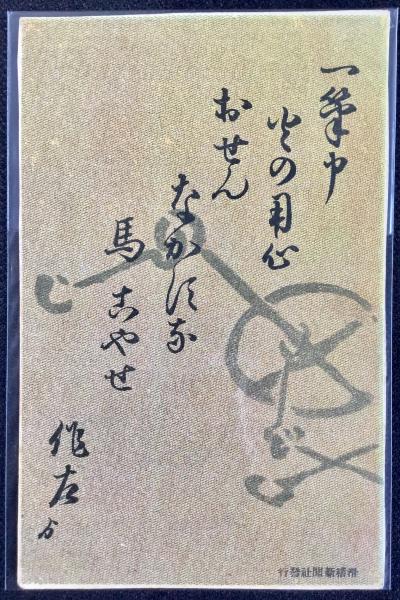 一筆申
火の用心
おせん
なかすな
馬こやせ
作左
ゟ
滑稽新聞社發行